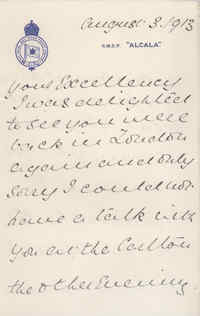 August 3. 1913
R.M.S.P. "ALCALA"
Your Excellency
I was delighted
to see you were
back in London
again and only
sorry I could not
have a talk with
you at the Carlton
the other Evening.